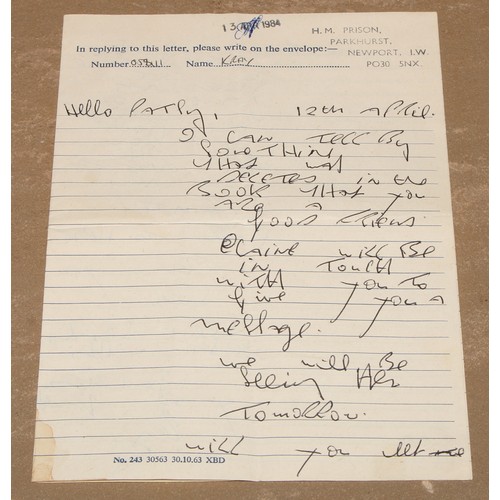 13 APR 1984
H. M. PRISON,
PARKHURST,
NEWPORT, I.W.
PO30 5NX.
In replying to this letter, please write on the envelope:—
Number Name KRAY
Hello Patsy, 12th April.
I CAN TELL BY
SOMETHING
that
DELETED in the
BOOK that you
ARE A
good friend.
Elaine will BE
in TOUCH
with you TO
give you A
message.
we will BE
Seeing Her
Tomorrow.
will you let me
No. 243 30563 30.10.63 XBD